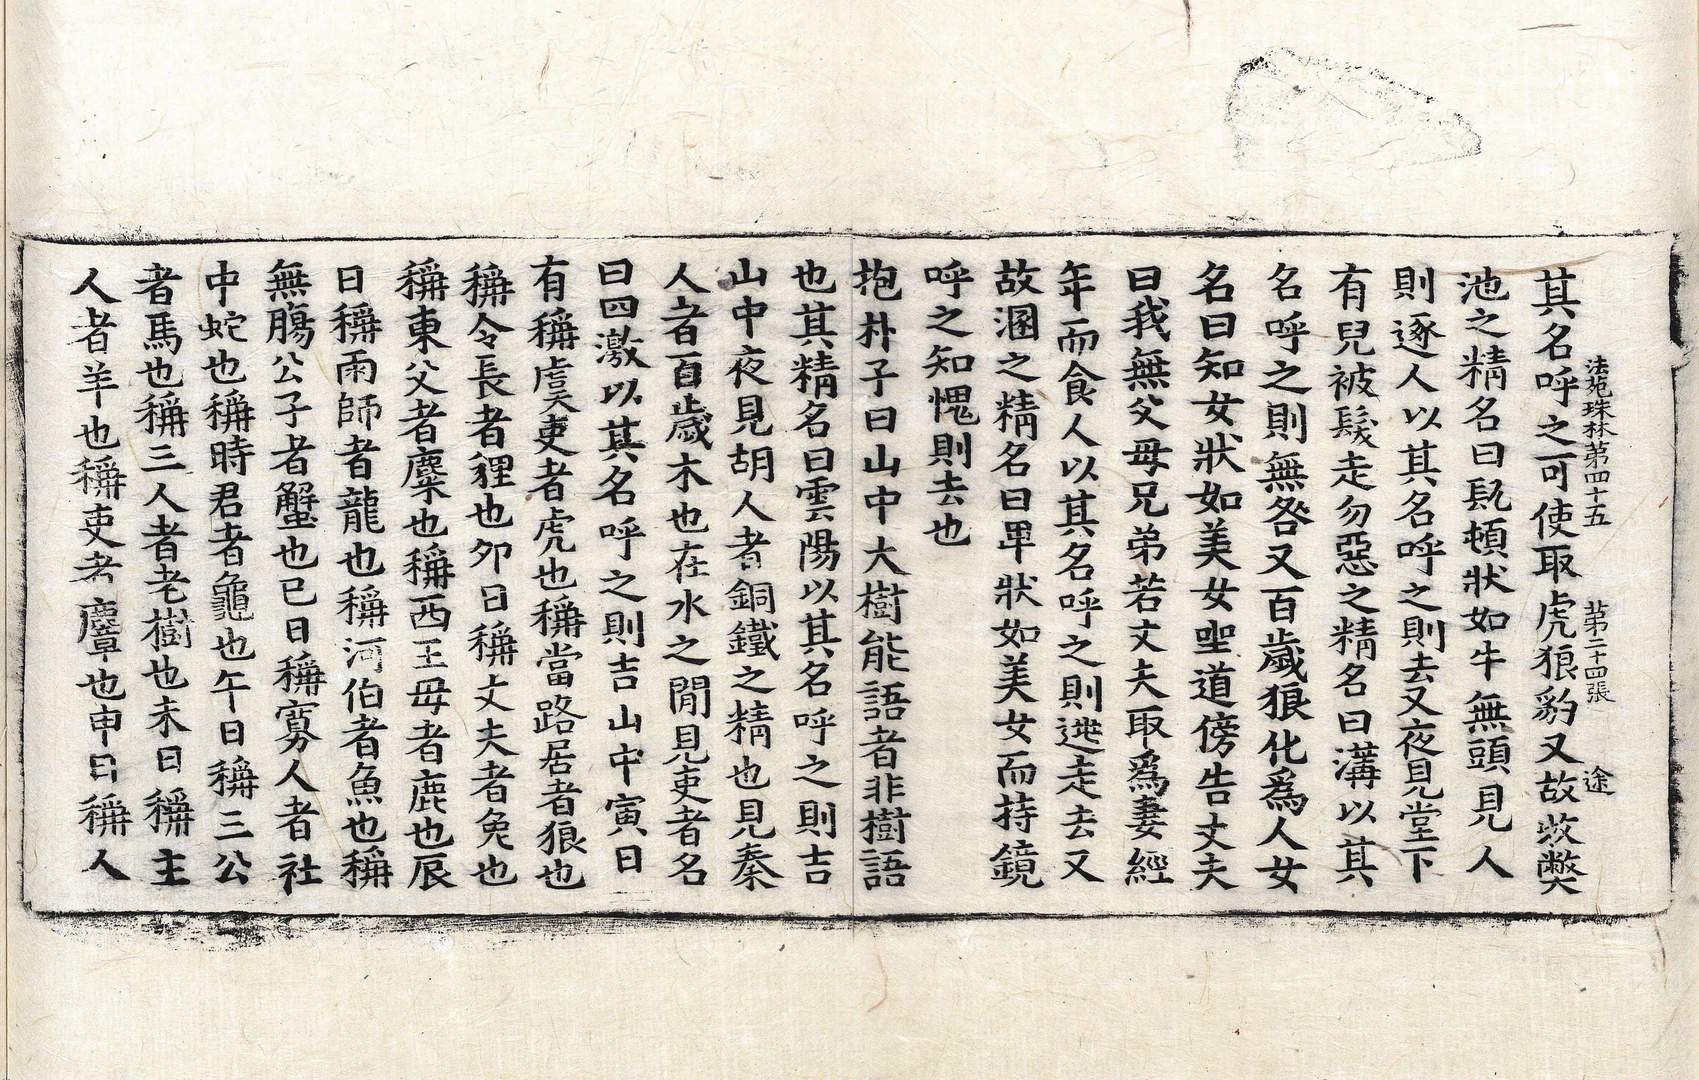 法苑珠林第四十五　第二十四張　途
其名呼之可使取虎狼豹又故牧弊
池之精名曰髠頓狀如牛無頭見人
則逐人以其名呼之則去又夜見堂下
有兒被髮走勿惡之精名曰溝以其
名呼之則無咎又百歲狼化爲人女
名曰知女狀如美女坐道傍告丈夫
曰我無父母兄弟若丈夫取爲妻經
年而食人以其名呼之則逃走去又
故溷之精名曰卑狀如美女而持鏡
呼之知愧則去也
抱朴子曰山中大樹能語者非樹語
也其精名曰雲陽以其名呼之則吉
山中夜見胡人者銅鐵之精也見秦
人者百歲木也在水之閒見吏者名
曰四激以其名呼之則吉山中寅日
有稱虞吏者虎也稱當路居者狼也
稱令長者狸也卯日稱丈夫者兔也
稱東父者麋也稱西王母者鹿也辰
日稱雨師者龍也稱河伯者魚也稱
無腸公子者蟹也巳日稱寡人者社
中蛇也稱時君者龜也午日稱三公
者馬也稱三人者老樹也未日稱主
人者羊也稱吏者麞也申日稱人